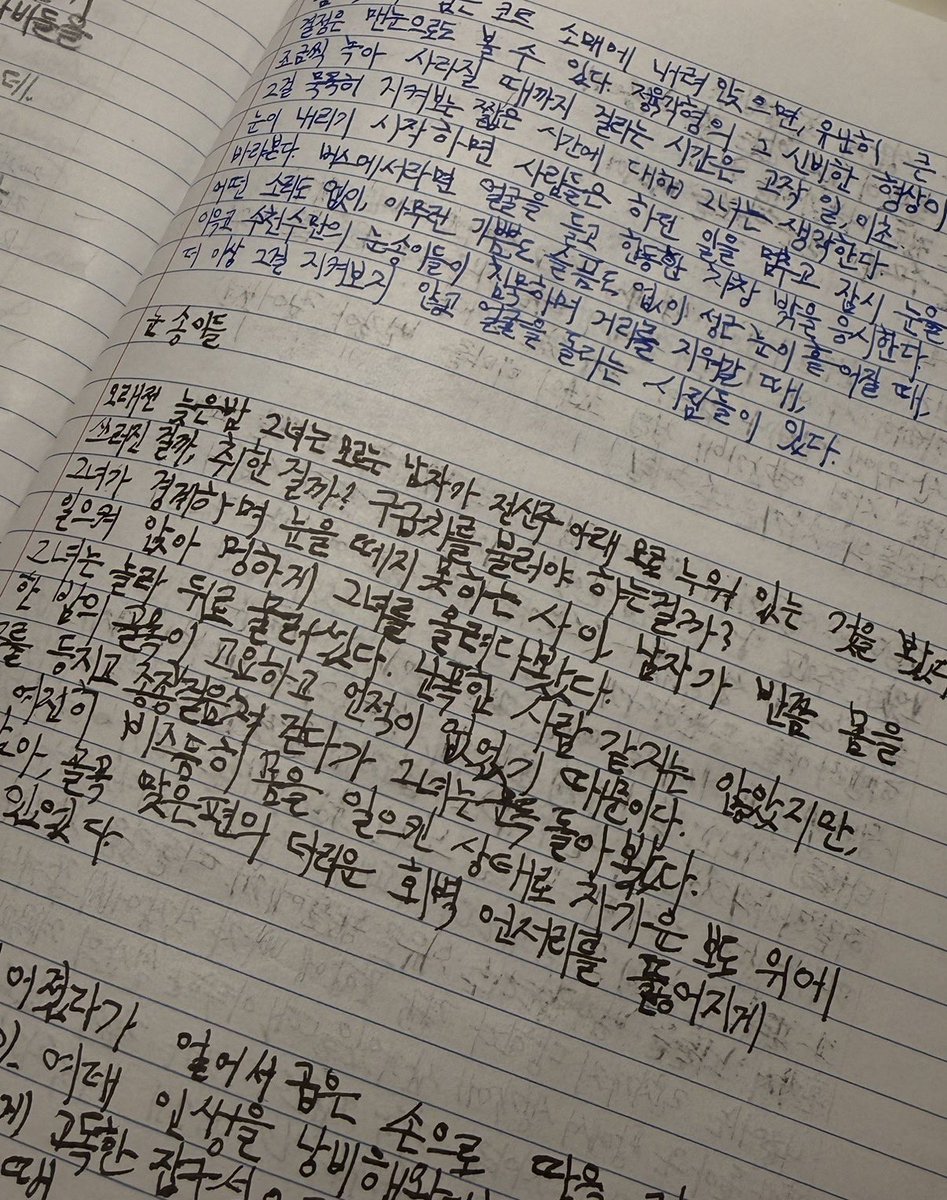 비들을
데.
코트 소매에 내려 앉으면, 유난히 큰
결정은 맨눈으로도 볼 수 있다. 정육각형의 그 신비한 형상이
조금씩 녹아 사라질 때까지 걸리는 시간은 고작 일, 이초.
그걸 묵묵히 지켜보는 짧은 시간에 대해 그녀는 생각한다.
눈이 내리기 시작하면 사람들은 하던 일을 멈추고 잠시 눈을
바라본다. 버스에서라면 얼굴을 들고 한동안 차창 밖을 응시한다.
어떤 소리도 없이, 아무런 기쁨도 슬픔도 없이 성근 눈이 흩어질 때,
이윽고 수천수만의 눈송이들이 침묵하며 거리를 지워갈 때,
더 이상 그걸 지켜보지 않고 얼굴을 돌리는 사람들이 있다.
눈송이들
오래전 늦은밤 그녀는 모르는 남자가 전신주 아래 모로 누워 있는 것을 봤다
쓰러진 걸까, 취한 걸까? 구급차를 불러야 하는걸까?
그녀가 경계하며 눈을 떼지 못하는 사이, 남자가 반쯤 몸을
일으켜 앉아 멍하게 그녀를 올려다봤다.
그녀는 놀라 뒤로 물러섰다. 난폭한 사람 같지는 않았지만,
한 밤의 골목이 고요하고 인적이 없었기 때문이다.
를 등지고 종종걸음쳐 걷다가 그녀는 문득 돌아봤다.
여전히 비스듬히 몸을 일으킨 상태로 차가운 보도 위에
아, 골목 맞은편의 더러운 회벽 언저리를 뚫어지게
있었다.
어졌다가 일어서 곱은 손으로
여태 인생을 낭비해왔
고독한 집구석
때